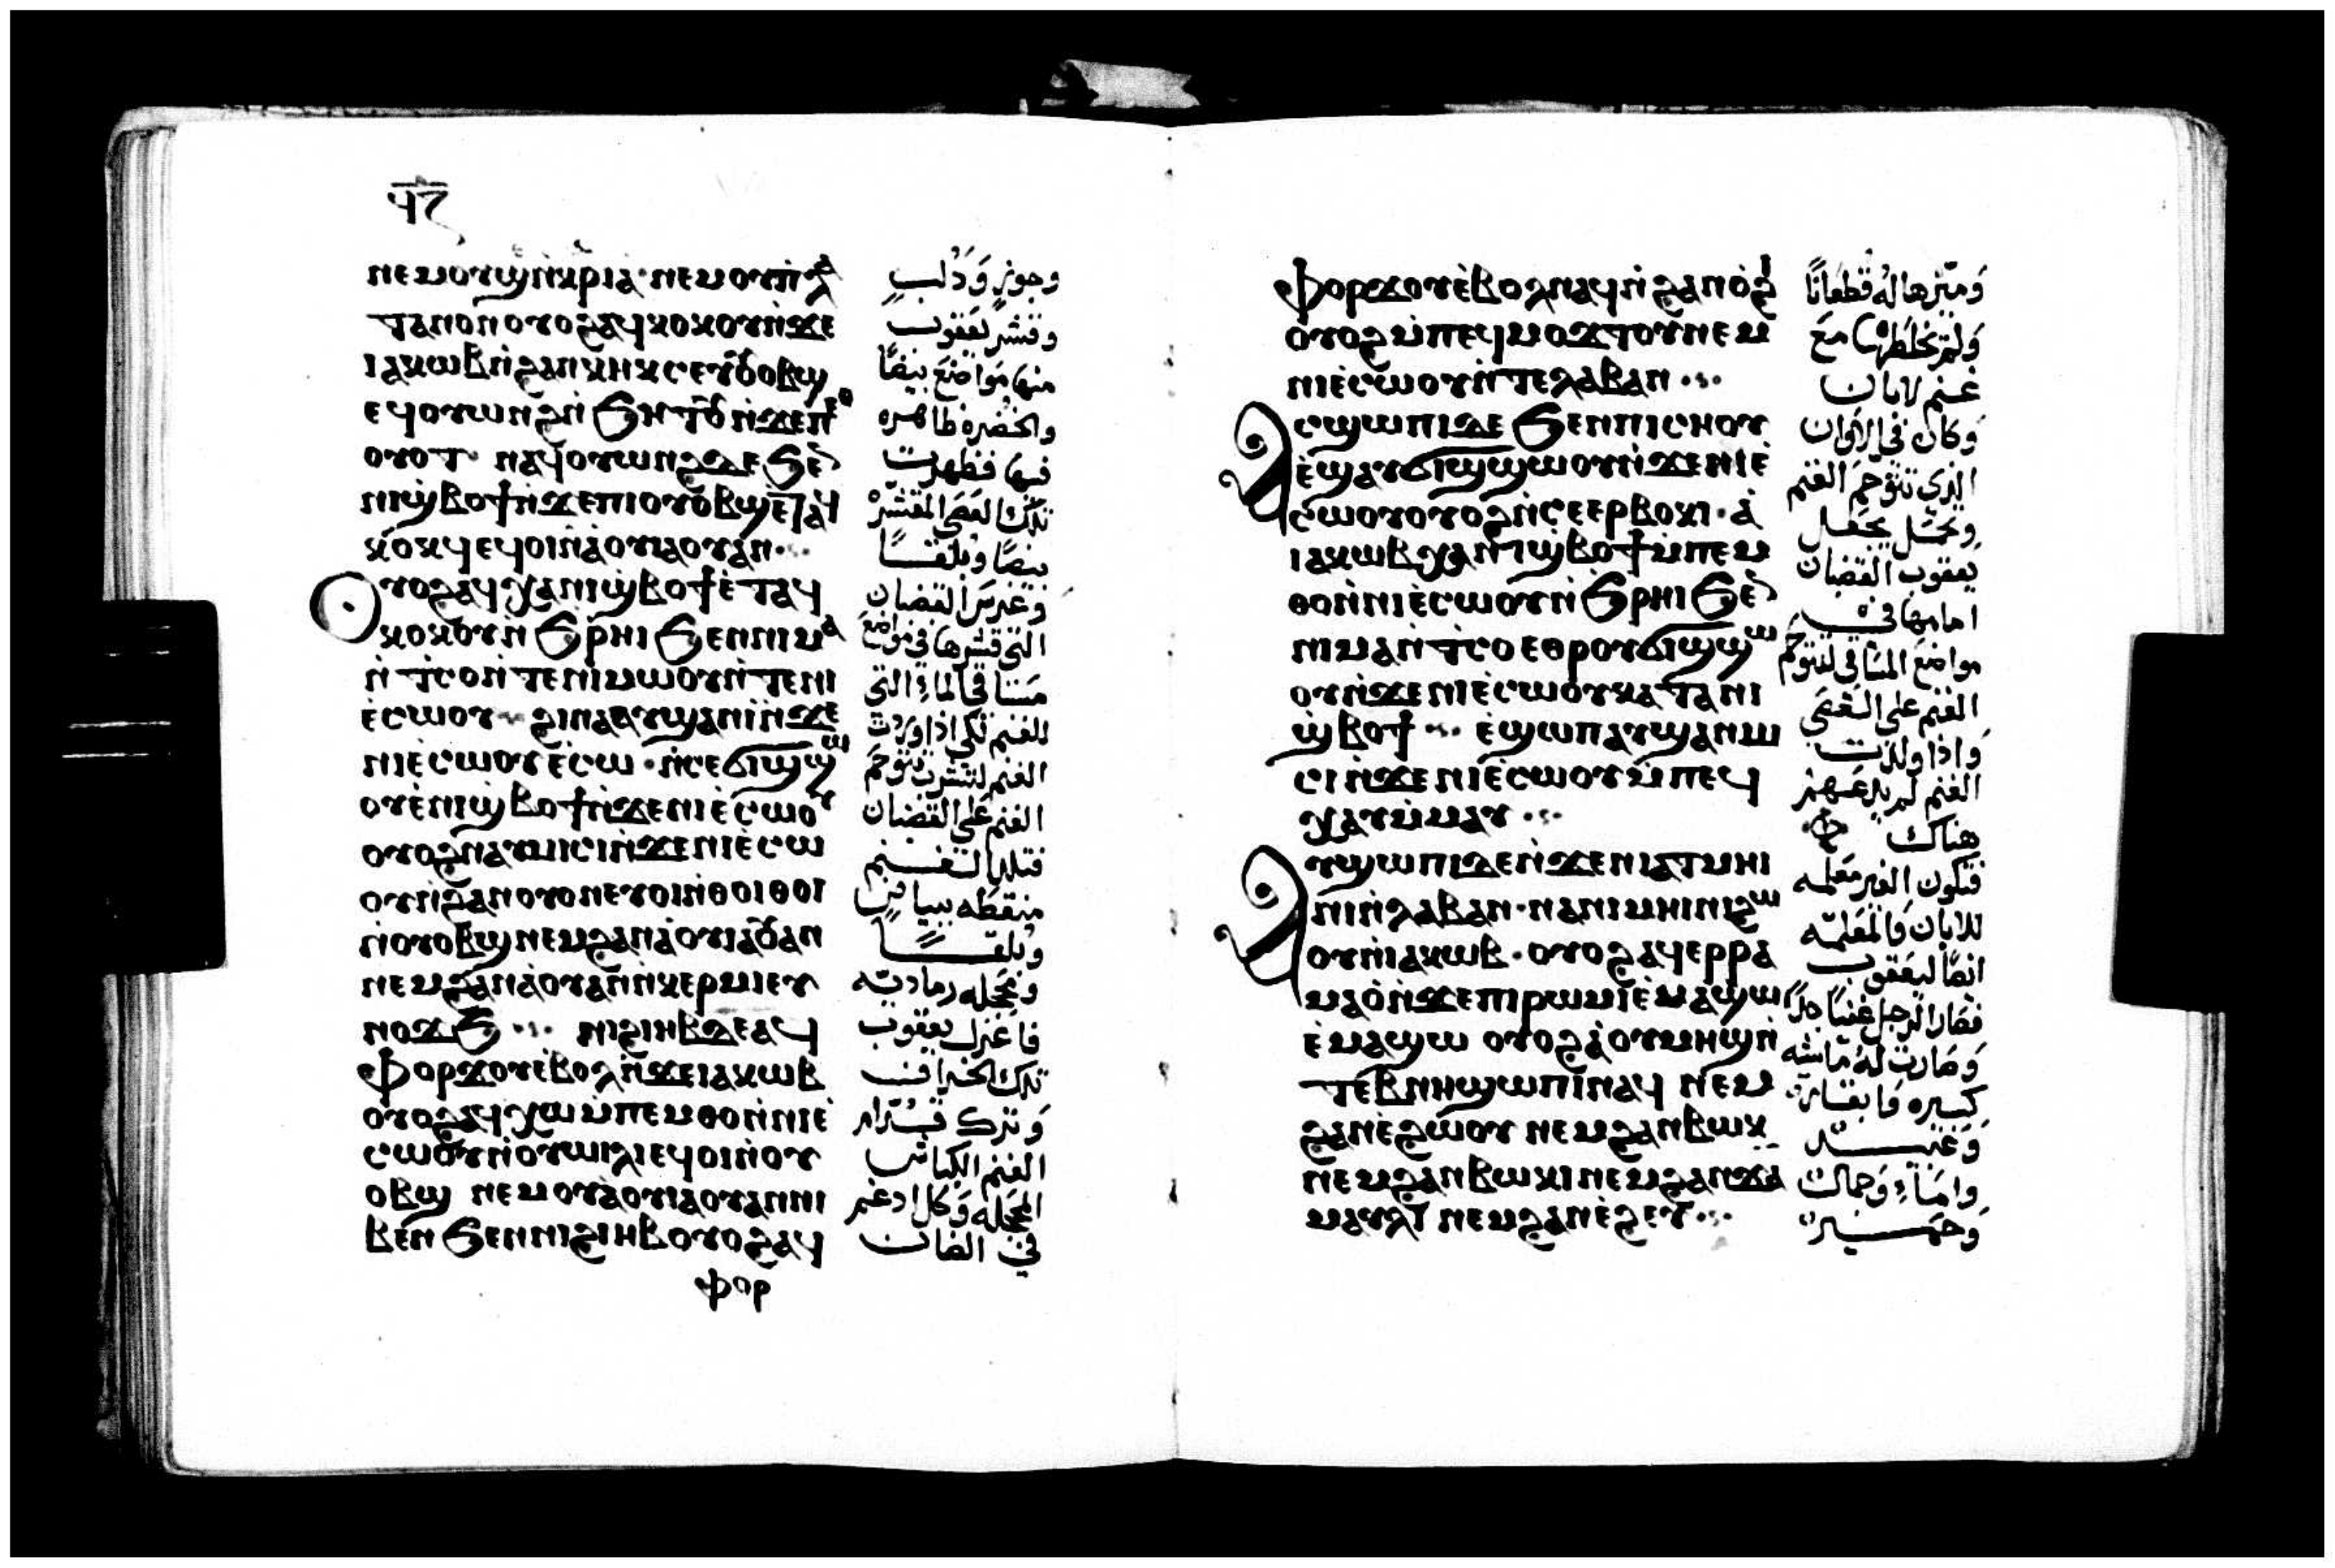 ⲛⲉⲙⲟⲩϣⲛ̀ⲭⲣⲓⲁ̀·ⲛⲉⲙⲟⲩⲡ̀ⲗⲁ
ⲧⲁⲛⲟⲛⲟⲩⲟϩⲁϥⲭⲟⲭⲟⲩⲛ̀ϫⲉ
ⲓⲁⲕⲱⲃⲛ̀ϩⲁⲛ
ⲟⲩⲟⲧ· ⲛⲁϥⲟⲩⲱⲛϩⲇⲉϧⲉⲛ
ⲛⲓϣ̀ⲃⲟϯⲛ̀ϫⲉⲡⲓⲟⲩⲟⲃϣⲉ̀ⲧⲁϥ
ⲭⲟⲭϥⲉϥⲟⲓⲛ̀ⲁⲟⲩⲓⲁⲟⲩⲁⲛ·
ⲟⲩⲟϩⲁϥⲭⲁⲛⲓϣ̀ⲃⲟϯⲉ̀ⲧⲁϥ
ⲭⲟⲭⲟⲩⲛ̀ϧⲣⲏⲓϧⲉⲛⲛⲓⲙⲁ
ⲛ̀ⲧ̀ⲥⲟⲛ̀ⲧⲉⲛⲓⲙⲱⲟⲩⲛ̀ⲧⲉⲛⲓ
ⲉ̀ⲥⲱⲟⲩ ϩⲓⲛⲁⲁⲩϣⲁⲛⲓ̀ⲛ̀ϫⲉ
ⲛⲓⲉ̀ⲥⲱⲟⲩⲉ̀ⲥⲱ·ⲛ̀ⲥⲉϭⲓϣϣⲱ
ⲟⲩⲉ̀ⲛⲓϣ̀ⲃⲟϯⲛ̀ϫⲉⲛⲓⲉ̀ⲥⲱⲟⲩ
ⲟⲩⲟϩⲛⲁⲩⲙⲓⲥⲓⲛ̀ϫⲉⲛⲓⲉ̀ⲥⲱ
ⲟⲩⲛ̀ϩⲁⲛⲟⲩⲟⲛⲉⲩⲟⲓⲛ̀ⲑⲟⲓⲑⲟⲓ
ⲛ̀ⲟⲩⲟⲃϣⲛⲉⲙϩⲁⲛⲁ̀ⲟⲩⲓⲁⲟⲩⲁⲛ
ⲛⲉⲙϩⲁⲛⲁ̀ⲟⲩⲁⲛⲛ̀ⲕⲉⲣⲙⲓⲉⲩ
ⲛⲟϫϧ ⲛⲓϩⲓⲏⲃⲇⲉⲁϥ
ⲫⲟⲣϫⲟⲩⲉ̀ⲃⲟⲗⲛ̀ϫⲉⲓⲁⲕⲱⲃ
ⲟⲩⲟϩⲁϥⲭⲱⲙ̀ⲡⲉⲙⲑⲟⲛ̀ⲛⲓⲉ̀
ⲥⲱⲟⲩⲛ̀ⲟⲩⲱⲓⲗⲓⲉϥⲟⲓⲛ̀ⲟⲩ
ⲟⲃϣ ⲛⲉⲙⲟⲩⲁ̀ⲟⲩⲓⲁⲟⲩⲁⲛⲛⲓ
ⲃⲉⲛϧⲉⲛⲛⲓϩⲓⲏⲃⲟⲩⲟϩⲁϥ
ⲫⲟⲣ
وجوزٍ وَدُلبٍ
وقشر يَعقوب
منها مَواضعَ بيضًا
والخضره ظاهره
فيها فظهرت
تلك العصى المقشره
بيضًا وبلقًا
وَغرسَ القضبان
التي قشرها في مواضع
مسَاقي الماءِ التي
للغنم لكى اذا وردت
الغنم لتشرب تتوحم
الغنم على القضبان
فتلد الغنم
منقطه ببياض
وبلقًا
ومحجله رماديّه
فاعزل يَعقوب
تلك الخراف
وَترك قدام
الغنم الكباش
المحجله وَكل ادغم
في الضان
ⲫⲟⲣϫⲟⲩⲉ̀ⲃⲟⲗⲛⲁϥⲛ̀ϩⲁⲛⲟ̀ϩⲓ
ⲟⲩⲟϩⲙ̀ⲡⲉϥⲙⲟϫⲧⲟⲩⲛⲉⲙ
ⲛⲓⲉ̀ⲥⲱⲟⲩⲛ̀ⲧⲉⲗⲁⲃⲁⲛ
ⲁⲥϣⲱⲡⲓⲇⲉϧⲉⲛⲡⲓⲥⲏⲟⲩ
ⲉ̀ϣⲁⲩϭⲓϣϣⲱⲟⲩⲛ̀ϫⲉⲛⲓⲉ̀
ⲥⲱⲟⲩⲟⲩⲟϩⲛ̀ⲥⲉⲉⲣⲃⲟⲕⲓ·ⲁ̀
ⲓⲁⲕⲱⲃⲭⲁⲛ̀ⲓϣ̀ⲃⲟϯⲙ̀ⲡⲉⲙ
ⲑⲟⲛ̀ⲛⲓⲉ̀ⲥⲱⲟⲩⲛ̀ϧⲣⲏⲓϧⲉⲛ
ⲛⲓⲙⲁⲛ̀ⲧ̀ⲥⲟⲉⲑⲣⲟⲩϭⲓϣϣⲱ
ⲟⲩⲛ̀ϫⲉⲛⲓⲉ̀ⲥⲱⲟⲩⲕⲁⲧⲁⲛⲓ
ϣ̀ⲃⲟϯ ⲉ̀ϣⲱⲡⲁⲩϣⲁⲛⲙ
ⲥⲓⲛ̀ϫⲉⲛⲓⲉ̀ⲥⲱⲟⲩⲙ̀ⲡⲉϥ
ⲭⲁⲩⲙ̀ⲙⲁⲩ
ⲁⲩϣⲱⲡⲓⲇⲉⲛ̀ϫⲉⲛⲓⲁⲧⲙⲏⲓ
ⲛⲓⲛ̀ⲗⲁⲃⲁⲛ·ⲛⲁⲛⲓⲙⲏⲓⲛⲓϩⲱ
ⲟⲩⲛ̀ⲓⲁⲕⲱⲃ·ⲟⲩⲟϩⲁϥⲉⲣⲣⲁ
ⲙⲁⲟ̀ⲛ̀ϫⲉⲡⲓⲣⲱⲙⲓⲉ̀ⲙⲁϣⲱ
ⲉ̀ⲙⲁϣⲱ ⲟⲩⲟϩⲁ̀ⲟⲩⲙⲏϣⲛ̀
ⲧⲉⲃⲛⲏϣⲱⲡⲓⲛⲁϥ ⲛⲉⲙ
ϩⲁⲛⲉ̀ϩⲱⲟⲩ ⲛⲉⲙϩⲁⲛⲃⲱⲕ
ⲛⲉⲙϩⲁⲛⲃⲱⲕⲓⲛⲉⲙϩⲁⲛϫⲁ
ⲙⲁⲩⲗⲓ ⲛⲉⲙϩⲁⲛⲉ̀ϩⲉⲩ
وَميّزها له قطعانًا
وَلم يخلطها مَع
غنم لابان
وَكان في الاوان
الذي تتوحم الغنم
وتحبل يجعل
يَعقوب القضبان
امامها في
مواضع المسَاقي لتتوحم
الغنم على العصَى
وَاذا ولدت
الغنم لم يدعهم
هناك
فتكون الغير معلمه
للابان وَالمعَلمه
ايضًا ليَعقوب
فصَار الرجل غنيًا جدًا
وَصَارت لهُ ماشيه
كثيره وَابقار
وَعبيد
وامَاءِ وَجمال
وَحمير